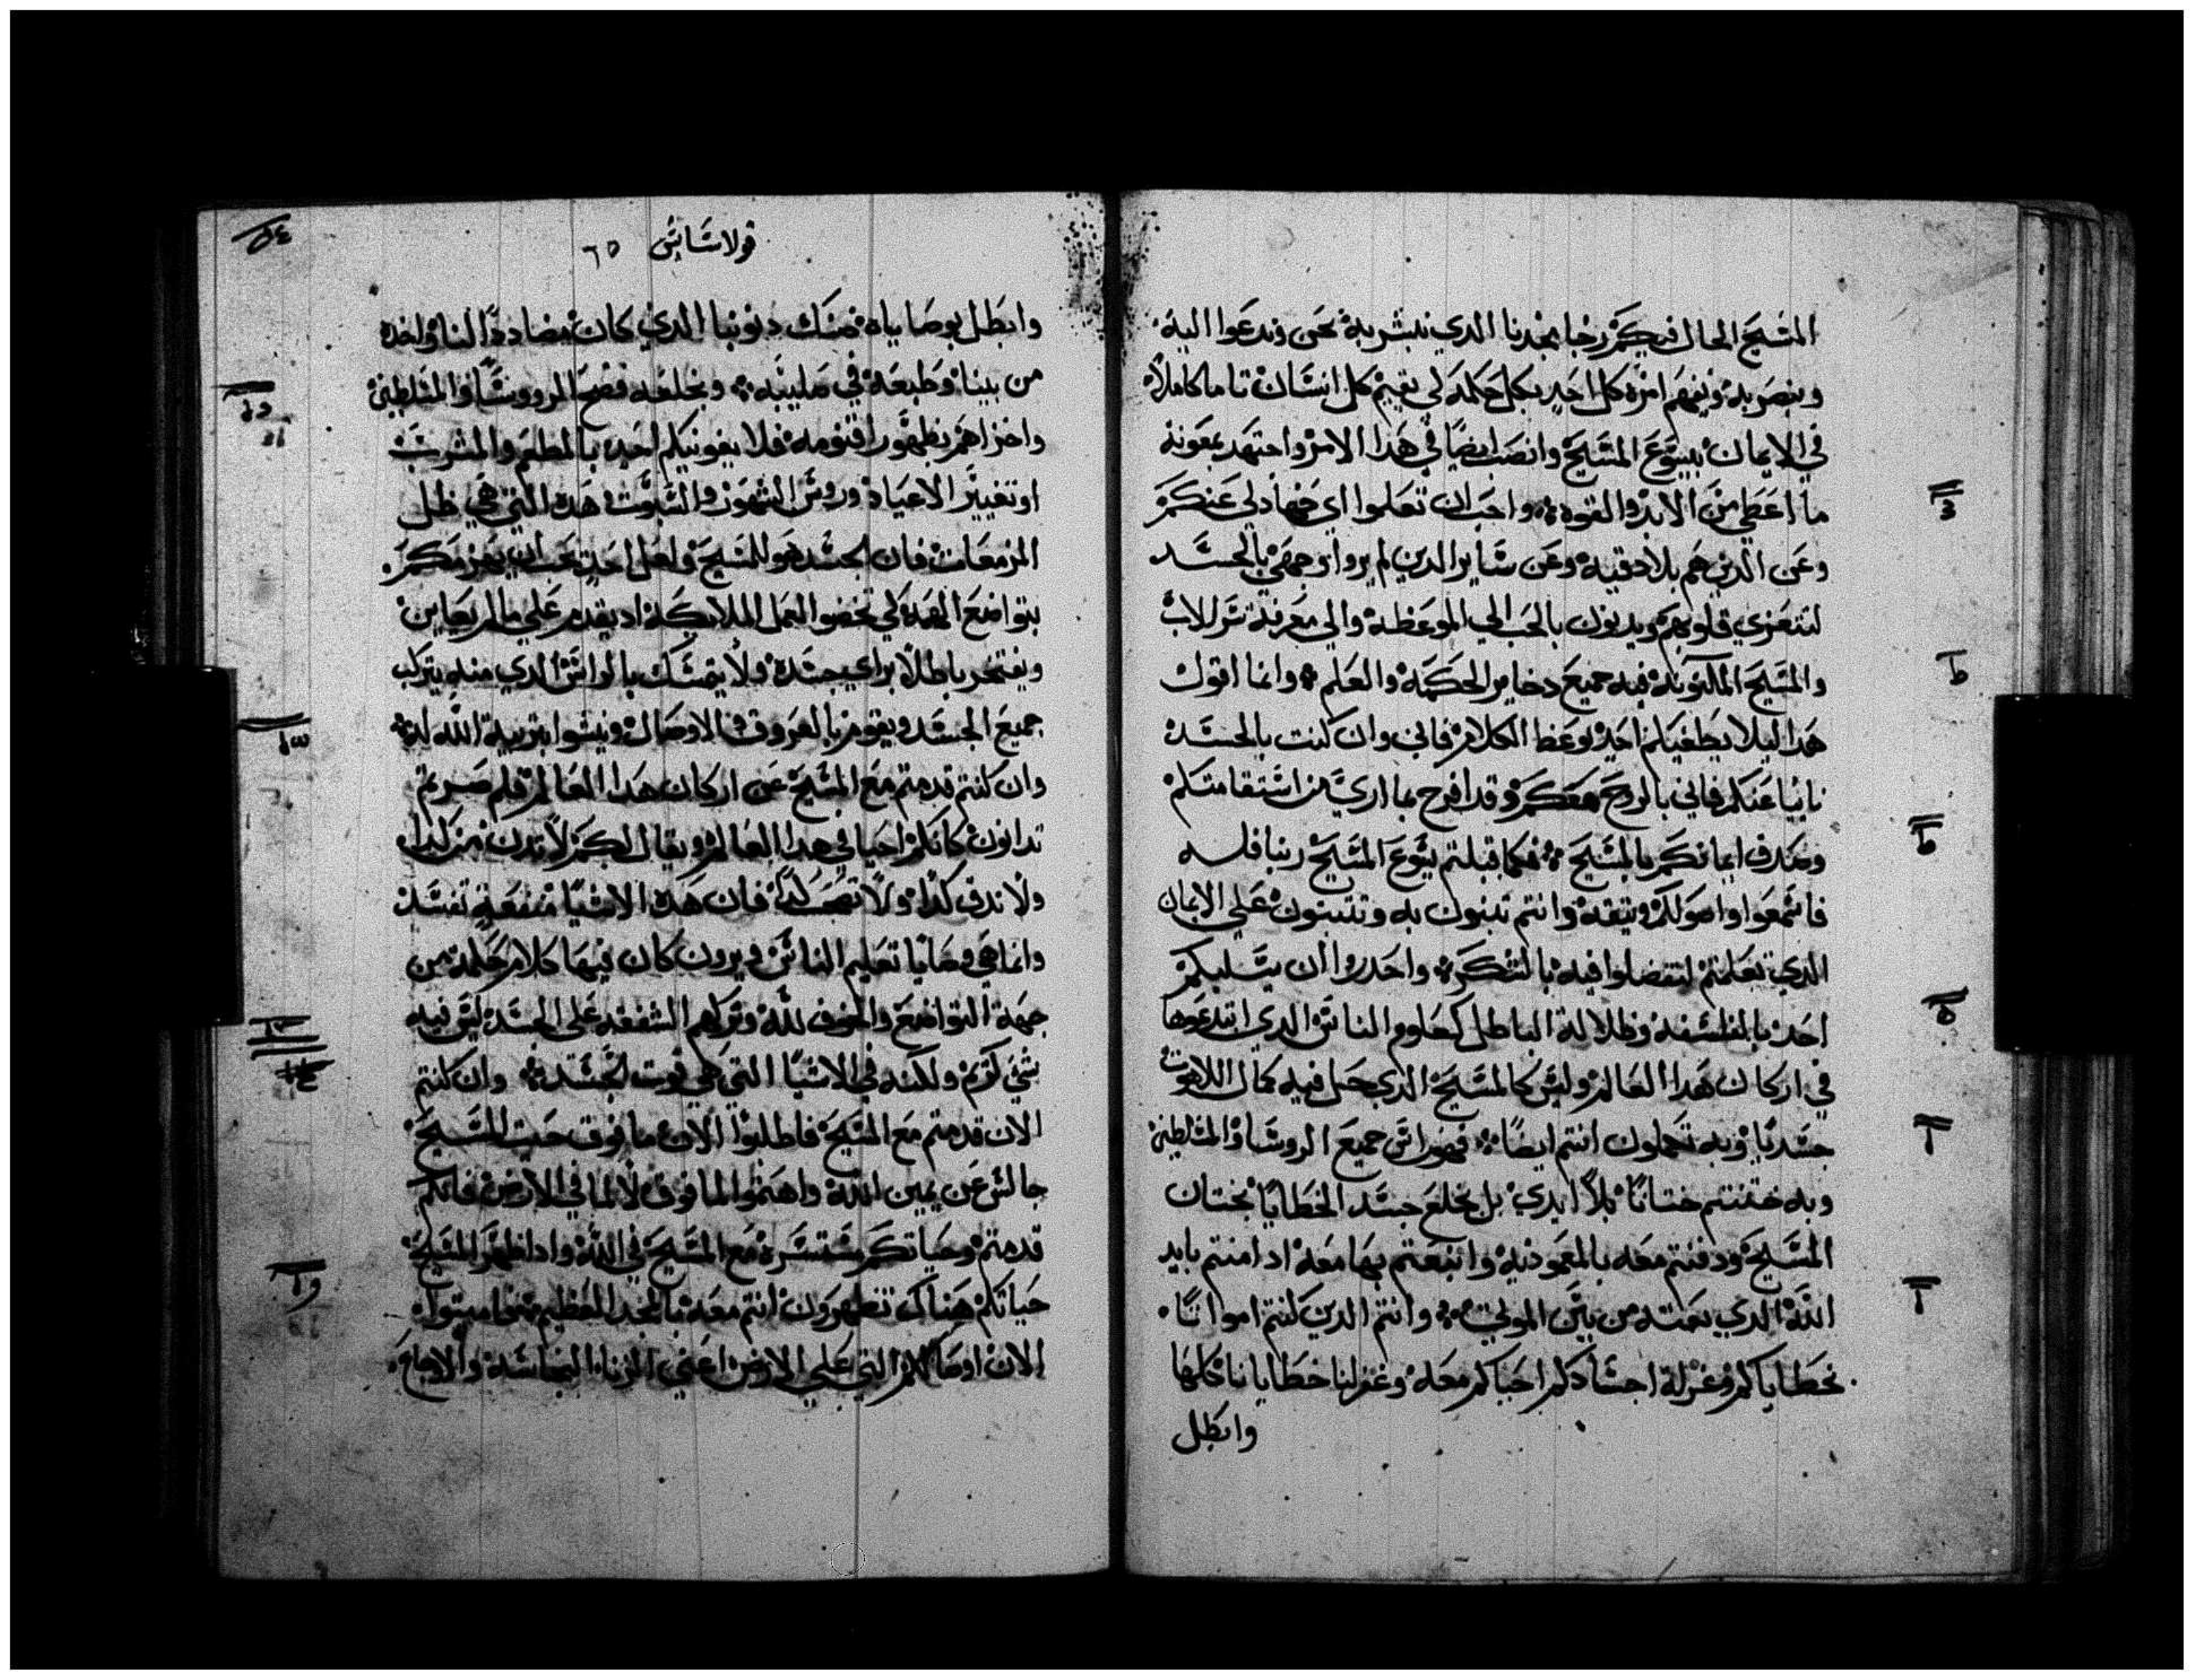 المسيح الحال فيكم رجا مجدنا الدي نبشر به نحن وندعوا اليه
ونبصر به ونفهم امره كل احد بكل حكمه لي نقيم كل انسان تاما كاملا
في الايمان بيسوع المسيح وانصب ايضا في هدا الامر واجتهد بمعونة
ما اعطي من الايد والقوه واحب ان تعلموا اي جهاد لي عنكم
وعن الدين هم بلادقيه وعن ساير الدين لم يروا وجهي بالجسد
لتتعزي قلوبهم ويدنون بالحب الي الموعظه والي معرفة سر الاب
والمسيح المكنونه فيه جميع دخاير الحكمه والعلم وانما اقول
هدا ليلا يطغيكم احد بوعظ الكلام فاني وان كنت بالجسد
نايا عنكم فاني بالروح معكم وقد افرح بما اري من استقامتكم
وصدق ايمانكم بالمسيح فكما قبلتم يسوع المسيح ربنا فلسه
فاسمعوا واصولكم وتيقه وانتم تبنون به وتتبتون علي الايمان
الدي تعلمتم لتفضلوا فيه بالشكر واحدروا ان يسلبكم
احد بالفلسفه وظلالة الباطل كعلوم الناس الدي ابتدعوها
في اركان هدا العالم وليس كالمسيح الدي حل فيه كمال اللاهوت
جسديا وبه تكملون انتم ايضا فهو راس جميع الروسا والمسلطين
وبه ختنتم ختانا بلا ايدي بل بخلع جسد الخطايا بختان
المسيح ودفنتم معه بالمعموديه وانبعتم بها معه اد امنتم بايد
الله الدي بعته من بين الموتي وانتم الدين كنتم امواتا
بخطاياكم وغرلة اجسادكم احياكم معه وغفر لنا خطايانا كلها
وابطل
قولاسايس ٦٥
وابطل بوصاياه صك ديوننا الدي كان مضاددا لنا واخده
من بيننا وطبعه في صليبه وبخلعه فضح الروسا والمسلطين
واخزاهم بظهور اقنومه فلا يغونيكم احد بالمطعم والمشرب
او تغيير الاعياد وروس الشهور والسبوت هده التي هي ظل
المزمعات فان الجسد هو للمسيح ولعل احد يحب ان يهزمكم
بتواضع الهمه لكي تخضوا لعمل الملايكه اد يقدم علي ما لم يعاين
ويفتخر باطلا براي جسده ولا يتمسك بالراس الدي منه يتركب
جميع الجسد ويقوم بالعروق والاوصال وينشوا بتربية الله له
وان كنتم قدمتم مع المسيح عن اركان هدا العالم فلم صرتم
تدانون كانكم احيا في هدا العالم ويقال لكم لا تدن من كدا
ولا تدق كدا ولا تصب كدا فان هده الاشيا منفعة تفسد
وانما هي وصايا تعليم الناس ويرون كان فيها كلام حكمه من
جهة التواضع والخوف لله وتركهم الشفقه علي الجسد ليس فيه
شي كريم ولكنه في الاشيا التي هي قوت الجسد وان كنتم
الان قدمتم مع المسيح فاطلبوا الان ما فوق حيت المسيح
جالس عن يمين الله واهتموا لما فوق لا لما في الارض فانكم
قدمتم وحياتكم مستتره مع المسيح في الله وادا ظهر المسيح
حياتكم هناك تظهرون انتم معه بالمجد العظيم فاميتوا
الان اوصالكم التي علي الارض اعني الزنا والنجاسه والاوجاع